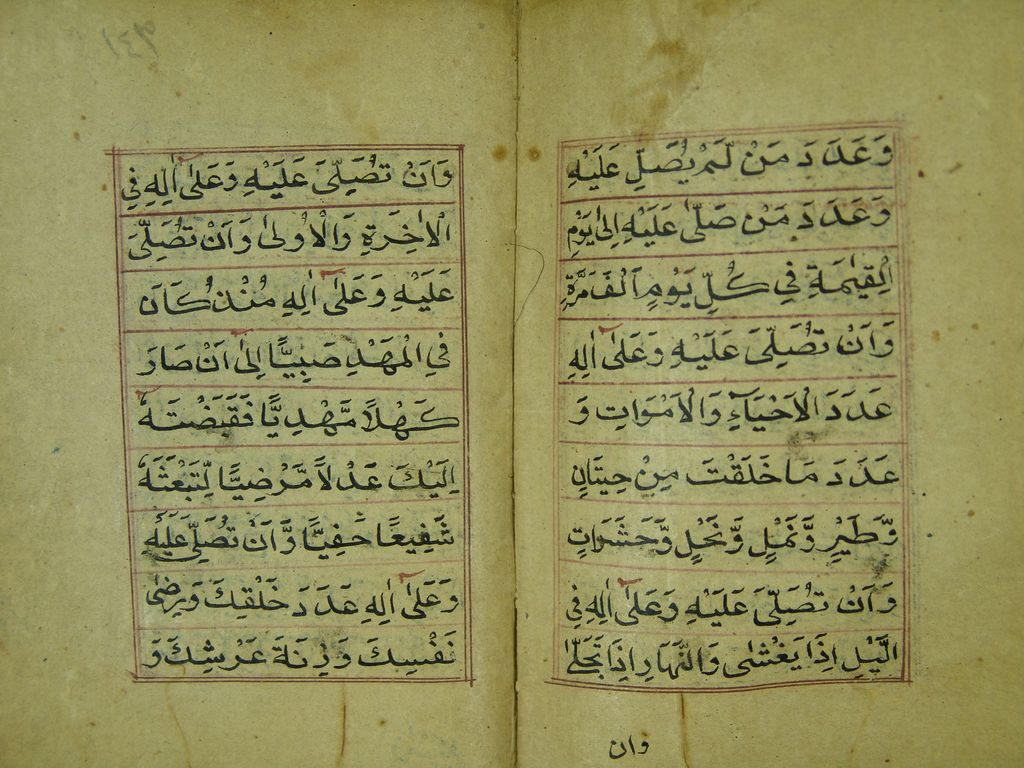 وَعَدَدَ مَنْ لَّمْ يُصَلِّ عَلَيْهِ
وَعَدَدَ مَنْ صَلّٰى عَلَيْهِ اِلٰى يَوْمِ
الْقِيٰمَةِ فِي كُلِّ يَوْمٍ اَلْفَ مَرَّةٍ
وَاَنْ تُصَلِّيَ عَلَيْهِ وَعَلٰٓى اٰلِهِ
عَدَدَ الْاَحْيَآءِ وَالْاَمْوَاتِ وَ
عَدَدَ مَا خَلَقْتَ مِنْ حِيتَانٍ
وَّطَيْرٍ وَّنَمْلٍ وَّنَحْلٍ وَّحَشَرَاتٍ
وَاَنْ تُصَلِّيَ عَلَيْهِ وَعَلٰٓى اٰلِهِ فِي
الَّيْلِ اِذَا يَغْشٰى وَالنَّهَارِ اِذَا تَجَلّٰى
وان
٦٤١
وَاَنْ تُصَلِّيَ عَلَيْهِ وَعَلٰٓى اٰلِهِ فِي
الْاٰخِرَةِ وَالْاُولٰى وَاَنْ تُصَلِّيَ
عَلَيْهِ وَعَلٰٓى اٰلِهِ مُنْذُ كَانَ
فِي الْمَهْدِ صَبِيًّا اِلٰٓى اَنْ صَارَ
كَهْلًا مَّهْدِيًّا فَقَبَضْتَهٗٓ
اِلَيْكَ عَدْلًا مَّرْضِيًّا لِّتَبْعَثَهٗ
شَفِيعًا حَفِيًّا وَّاَنْ تُصَلِّيَ عَلَيْهِ
وَعَلٰٓى اٰلِهِ عَدَدَ خَلْقِكَ وَرِضٰى
نَفْسِكَ وَزِنَةَ عَرْشِكَ وَ